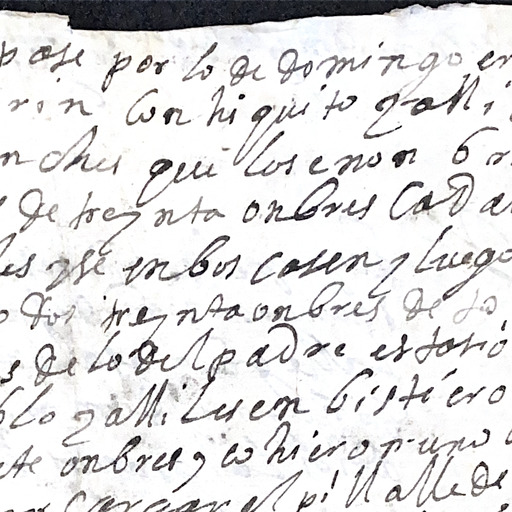 pase por lo de domingo en
rin Con hiquito y alli
nches quilosenon 6
de treynta onbres Cada
les y se enboscasen y luego
dos treynta onbres de to
s de lo del padre estario
blo y alli les enbistiero
ete onbres y cohieron uno
cargar el pe. Nalle de